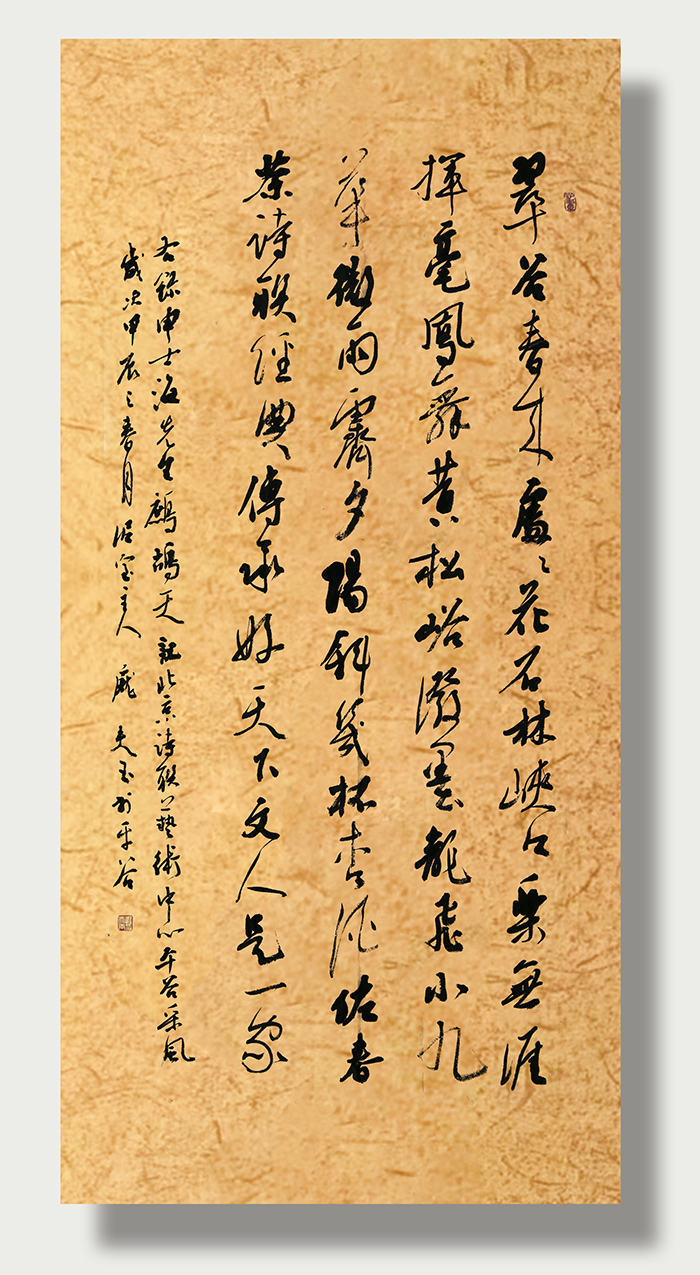 翠谷春來處々花石林峽口樂無涯
揮毫鳳舞黃松峪潑墨龍飛小九
華微雨霽夕陽斜幾杯杏酒佐春
茶詩联經典傳承好天下文人是一家
右錄申士海先生鷓鴣天記北京詩联藝術中心平谷采風
歲次甲辰之春月主人龐玉於平谷